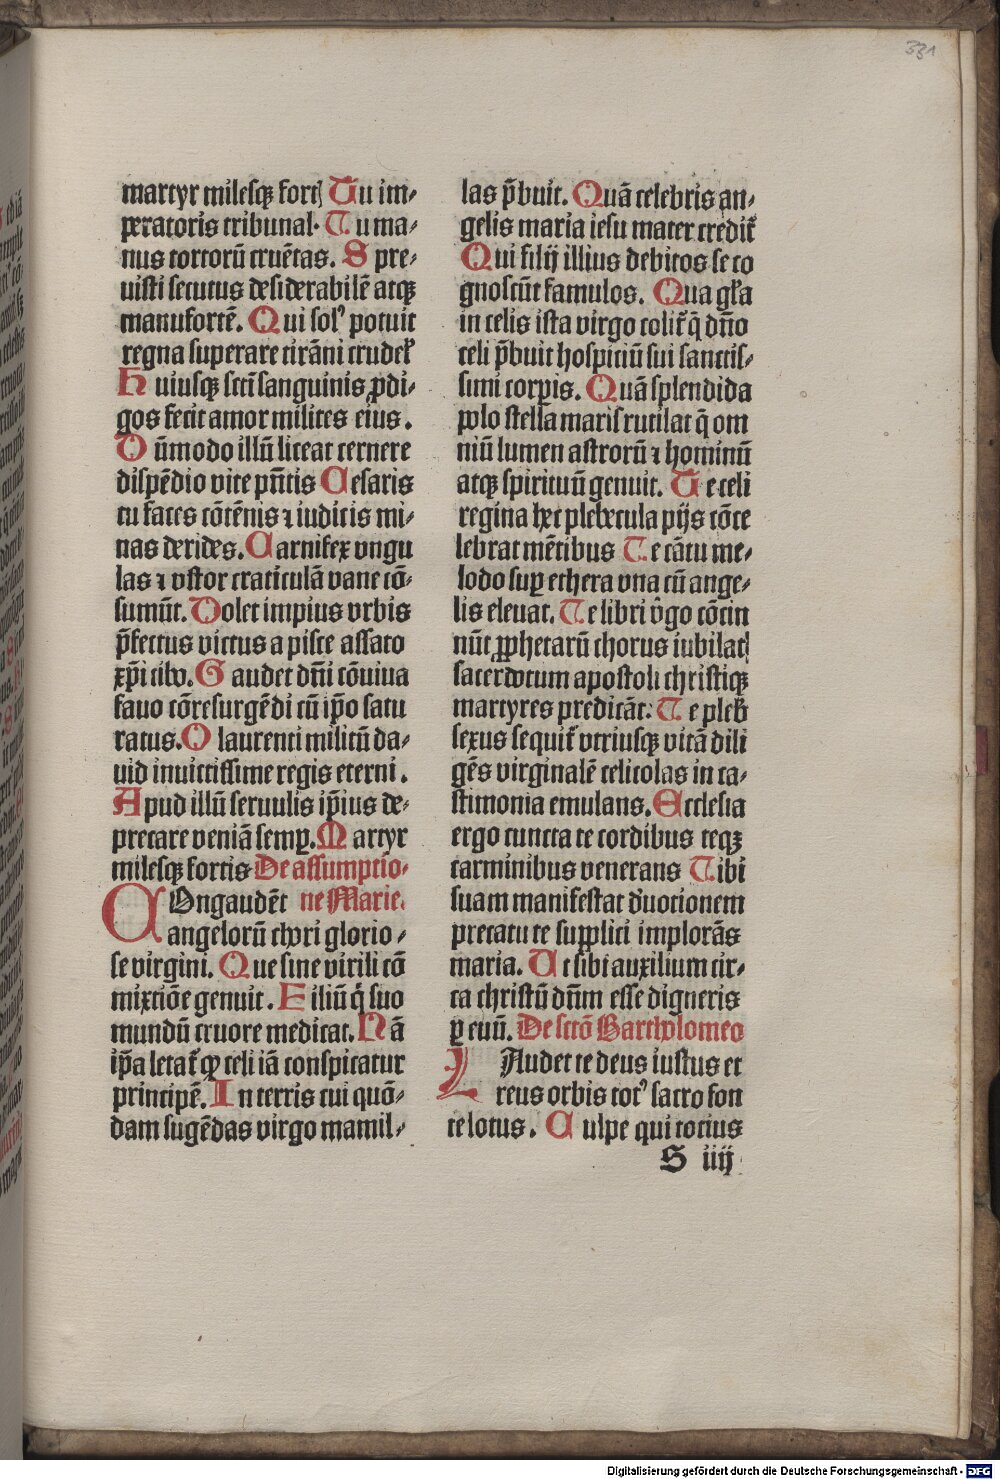 331
martyr milesqꝫ fortꝭ Tu im⸗
peratoris tribunal· Tu ma⸗
nus tortorū cruētas. S pre⸗
uisti secutus desiderabilē atqꝫ
manufortē. Qui solꝰ potuit
regna superare tirāni crudel̓
Huiusqꝫ sctī sanguinis ꝓdi⸗
gos fecit amor milites eius.
Dūmodo illū liceat cernere
dispēdio vite pn̄tis Cesaris
tu faces cōtēnis ⁊ iudicis mi⸗
nas derides. Carnifex vngu
las ⁊ vstor craticulā vane cō⸗
sumūt. Dolet impius vrbis
p̄fectus victus a pisce assato
xp̄i cibo. Gaudet dn̄i cōuiua
fauo cōresurgēdi cū ip̄o satu
ratus. O laurenti militū da⸗
uid inuictissime regis eterni.
Apud illū seruulis ip̄ius de⸗
precare veniā semp̲. Martyr
milesqꝫ fortis De assumptio⸗
COngaudēt ne Marie.
angelorū chori glorio⸗
se virgini. Que sine virili cō
mixtiōe genuit. Filiū q̇ suo
mundū cruore medicat. Nā
ip̄a letat᷑ ꝙ celi iā conspicatur
principē. In terris cui quō⸗
dam sugēdas virgo mamil⸗
las p̄buit. Quā celebris an⸗
gelis maria iesu mater credit᷑
Qui filij illius debitos se co
gnoscūt famulos. Qua gl̓a
in celis ista virgo colit᷑ q̄ dn̄o
celi p̄buit hospiciū sui sanctis⸗
simi corp̲is. Quā splendida
polo stella maris rutilat q̄ om
niū lumen astrorū ⁊ hominū
atqꝫ spirituū genuit. Te celi
regina hec plebecula pijs cōce
lebrat mētibus Te cātu me⸗
lodo sup̲ ethera vna cū ange⸗
lis eleuat. Te libri v̊go cōcin
nūt ꝓphetarū chorus iubilat
sacerdotum apostoli christiqꝫ
martyres predicāt: Te pleb̓
sexus sequit᷑ vtriusqꝫ vitā dili
gēs virginalē celicolas in ca⸗
stimonia emulans. Ecclesia
ergo cuncta te cordibus teqꝫ
carminibus venerans Tibi
suam manifestat d̓uotionem
precatu te supplici implorās
maria. Ut sibi auxilium cir⸗
ca christū dn̄m esse digneris
p̲ euū. De scto̅ Bartholomeo
LAudet te deus iustus et
reus orbis totꝰ sacro fon
te lotus. Culpe qui tocius
S iiij
Digitalisierung gefördert durch die Deutsche Forschungsgemeinschaft - DFG